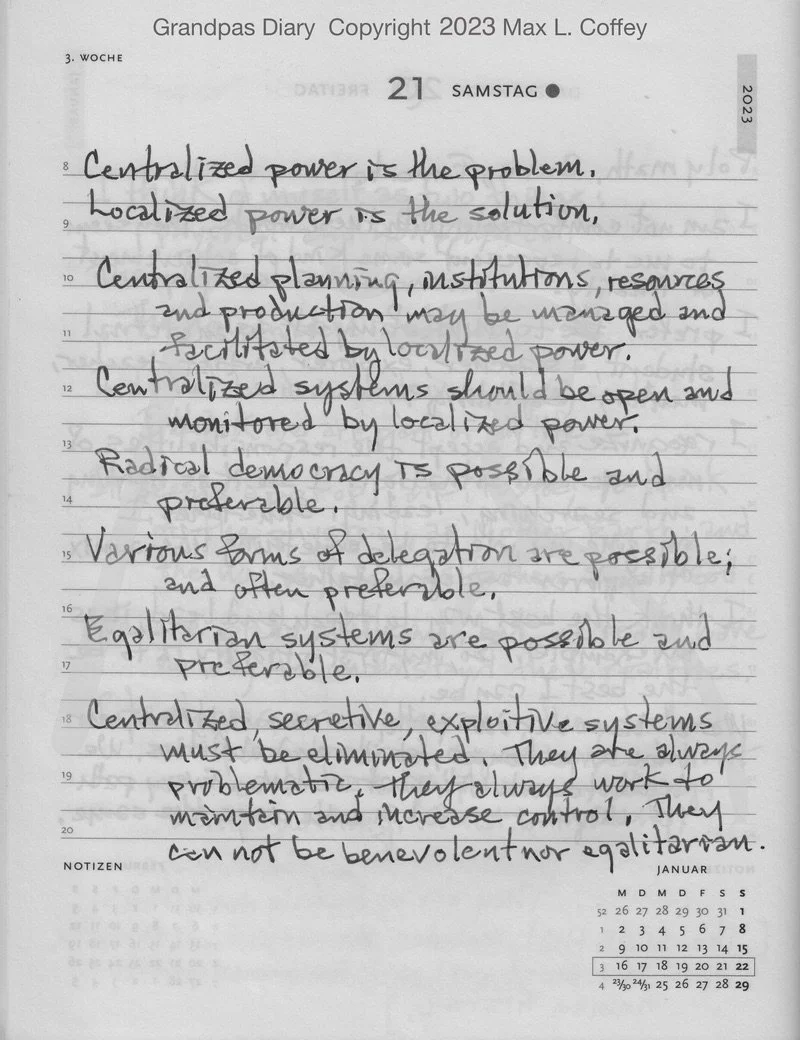 Grandpas Diary Copyright 2023 Max L. Coffey
3. WOCHE
21 SAMSTAG
2023
8 Centralized power is the problem.
Localized power is the solution.
9
10 Centralized planning, institutions, resources
and production may be managed and
11 facilitated by localized power.
12 Centralized systems should be open and
monitored by localized power.
13
Radical democracy is possible and
14 preferable.
15 Various forms of delegation are possible;
and often preferable.
16
Egalitarian systems are possible and
17 preferable.
18 Centralized, secretive, exploitive systems
must be eliminated. They are always
19 problematic, they always work to
maintain and increase control. They
20 can not be benevolent nor egalitarian.
NOTIZEN
JANUAR
M D M D F S S
52 26 27 28 29 30 31 1
1 2 3 4 5 6 7 8
2 9 10 11 12 13 14 15
3 16 17 18 19 20 21 22
4 23/30 24/31 25 26 27 28 29